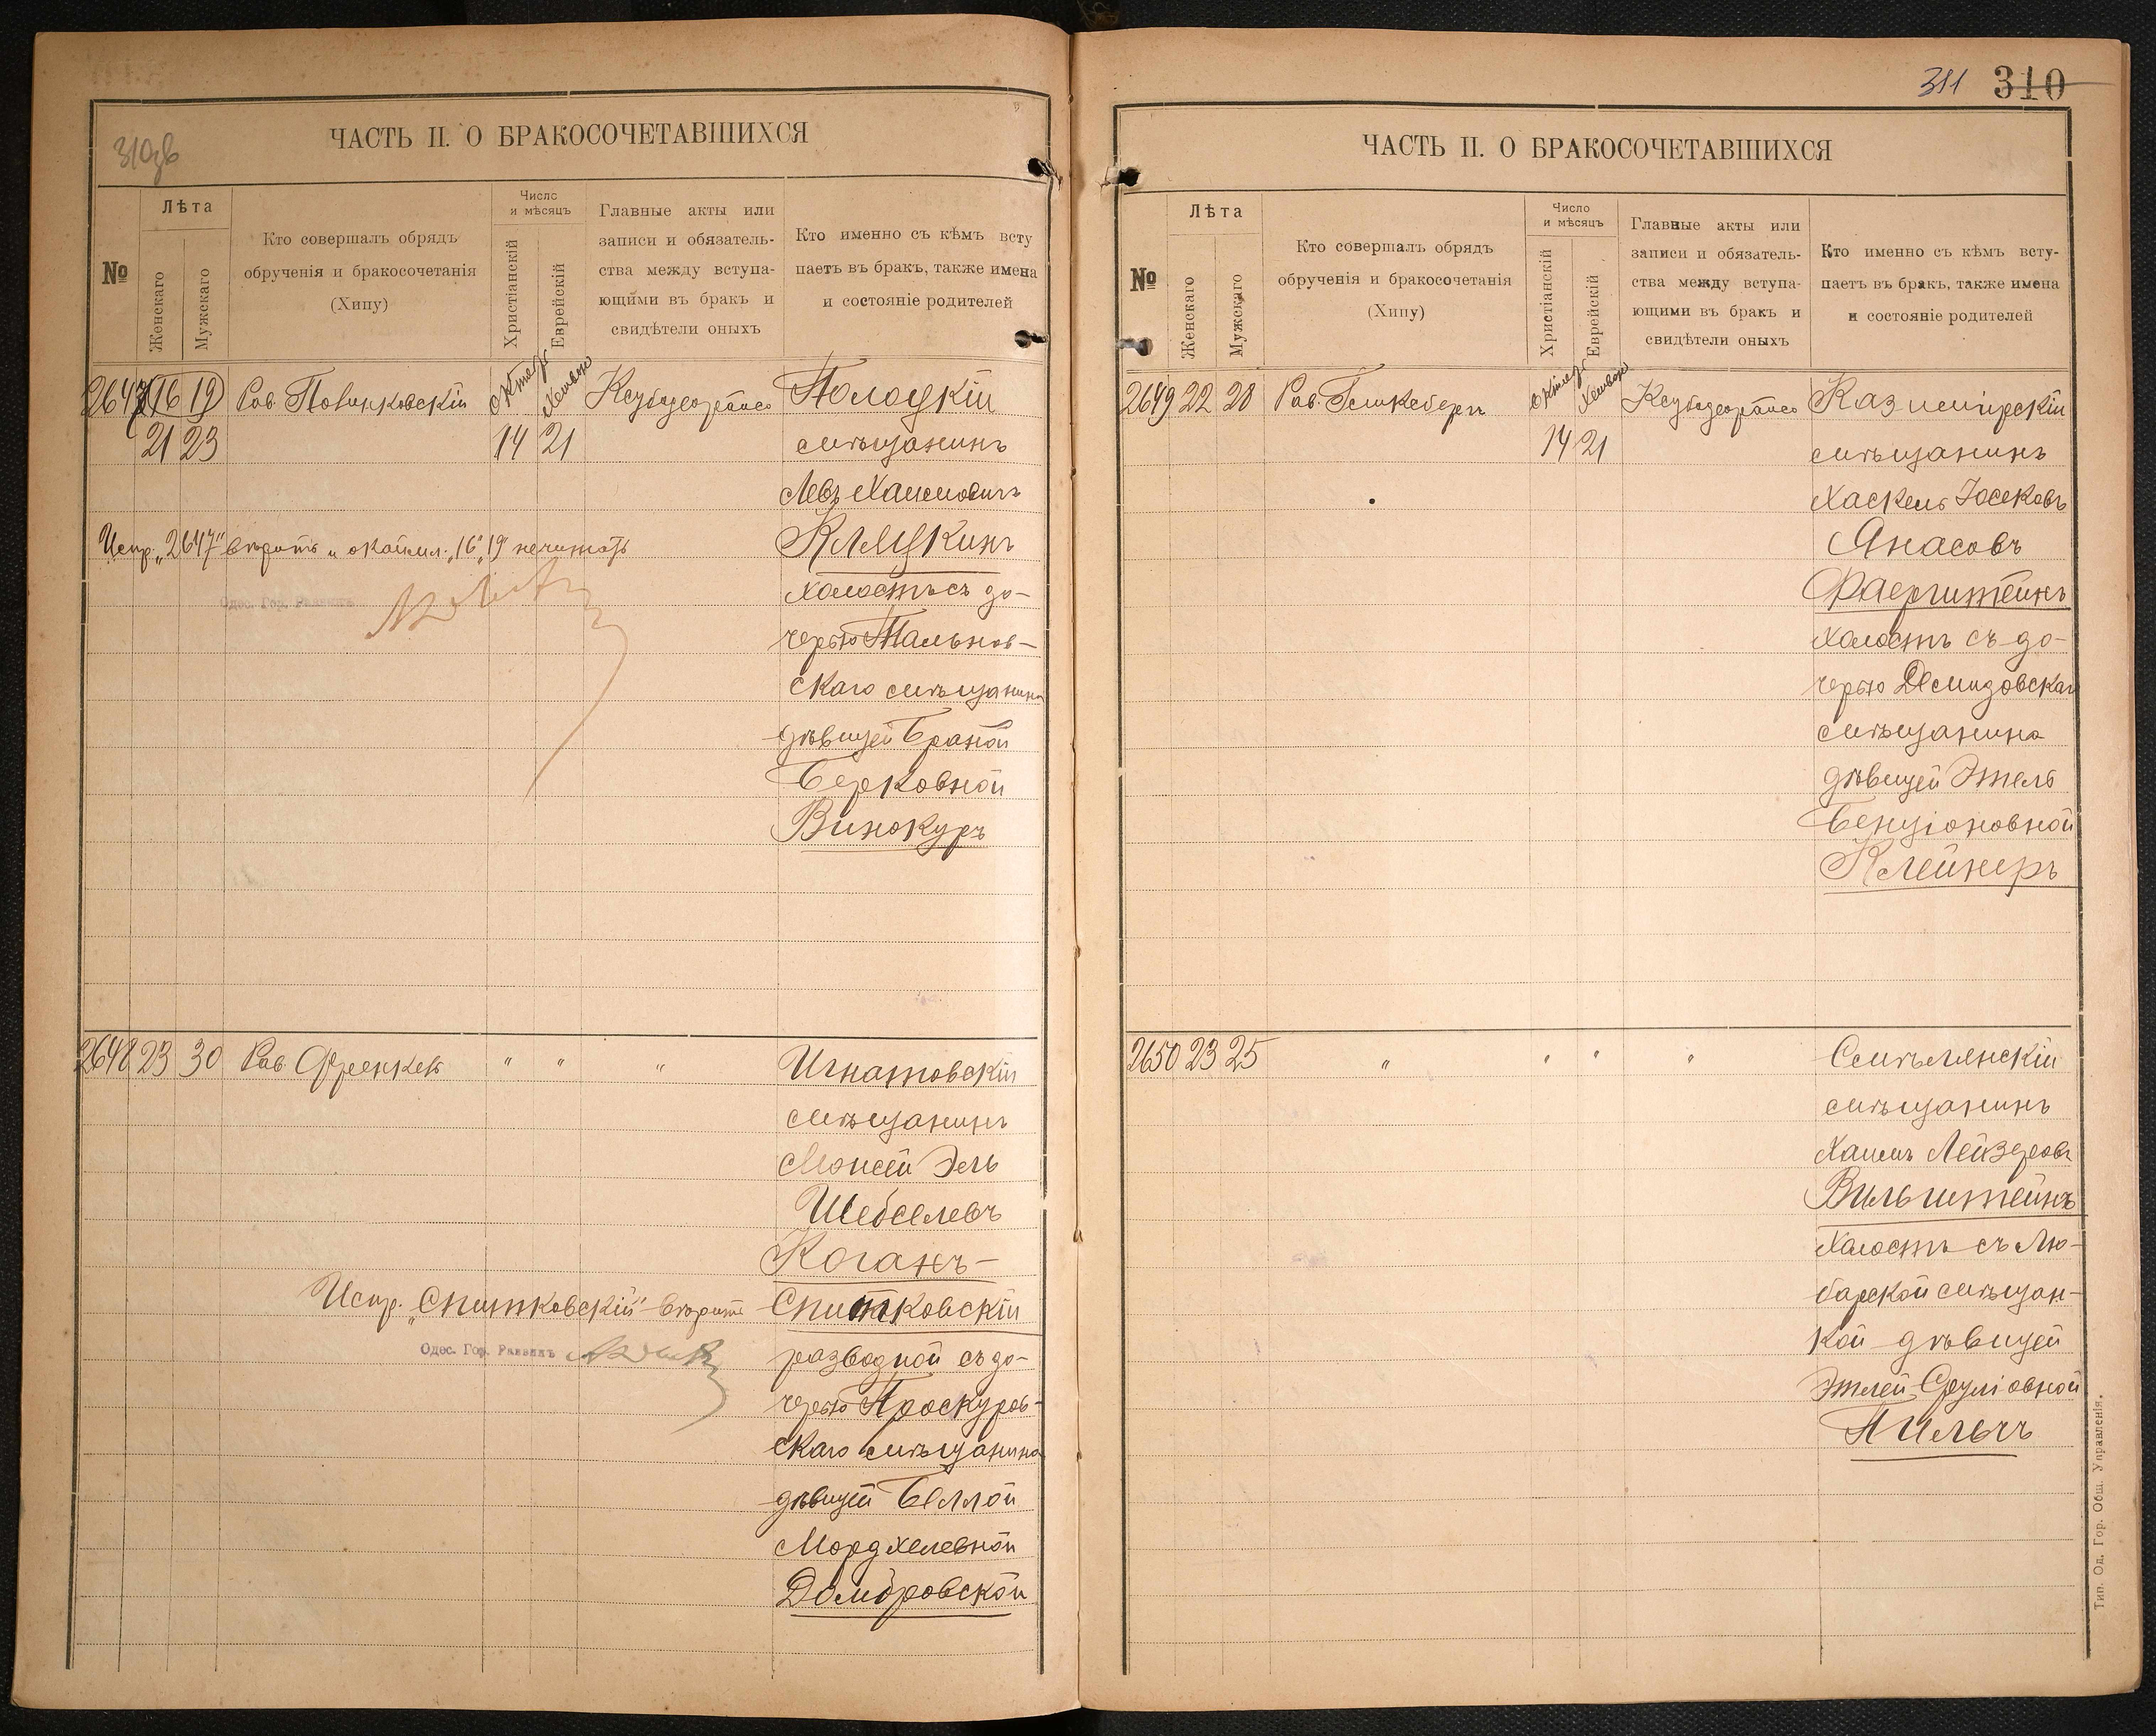 310об
ЧАСТЬ II. О БРАКОСОЧЕТАВШИХСЯ
№
Лѣта
Женскаго
Мужскаго
Кто совершалъ обрядъ
обрученія и бракосочетанія
(Хипу)
Число
и мѣсяцъ
Христіанскій
Еврейскій
Главные акты или
записи и обязатель-
ства между вступа-
ющими въ бракъ и
свидѣтели оныхъ
Кто именно съ кѣмъ всту
паетъ въ бракъ, также имена
и состояніе родителей
2647 16 19 Рав. Полинковскій
21 23
14 21
Полоцкій
мѣщанинъ
Левъ Хаимовичъ
Клецкинъ
холостъ съ до-
черью Тальнов-
скаго мѣщанина
дѣвицей Браной
Берковной
Винокуръ
Испр. „2647" вѣрить и окаймл. „16" „19" не читать
Одес. Гор. Раввинъ
2648 23 30 Рав. Френкель " " "
Игнатовскій
мѣщанинъ
Моисей Эль
Шебселевъ
Коганъ-
Спитковскій
разводной съ до-
черью Проскуров-
скаго мѣщанина
дѣвицей Беллой
Мордхелевной
Домбровской
Испр. „Спитковскій" вѣрить
Одес. Гор. Раввинъ
311 310
ЧАСТЬ II. О БРАКОСОЧЕТАВШИХСЯ
№
Лѣта
Женскаго
Мужскаго
Кто совершалъ обрядъ
обрученія и бракосочетанія
(Хипу)
Число
и мѣсяцъ
Христіанскій
Еврейскій
Главные акты или
записи и обязатель-
ства между вступа-
ющими въ бракъ и
свидѣтели оныхъ
Кто именно съ кѣмъ всту-
паетъ въ бракъ, также имена
и состояніе родителей
2649 22 28 Рав.
14 21
Казимирскій
мѣщанинъ
Хаскель Іосековъ
Янасовъ
Фаерштейнъ
холостъ съ до-
черью Демидовскаго
мѣщанина
дѣвицей Этель
Бенціоновной
Клейнеръ
2650 23 25 " " " "
Смѣлянскій
мѣщанинъ
Хаимъ Лейзеровъ
Вильштейнъ
холостъ съ Лю-
барской мѣщан-
кой дѣвицей
Этлей Сруліовной
Пильчъ
Тип. Од. Гор. Общ. Управленія.